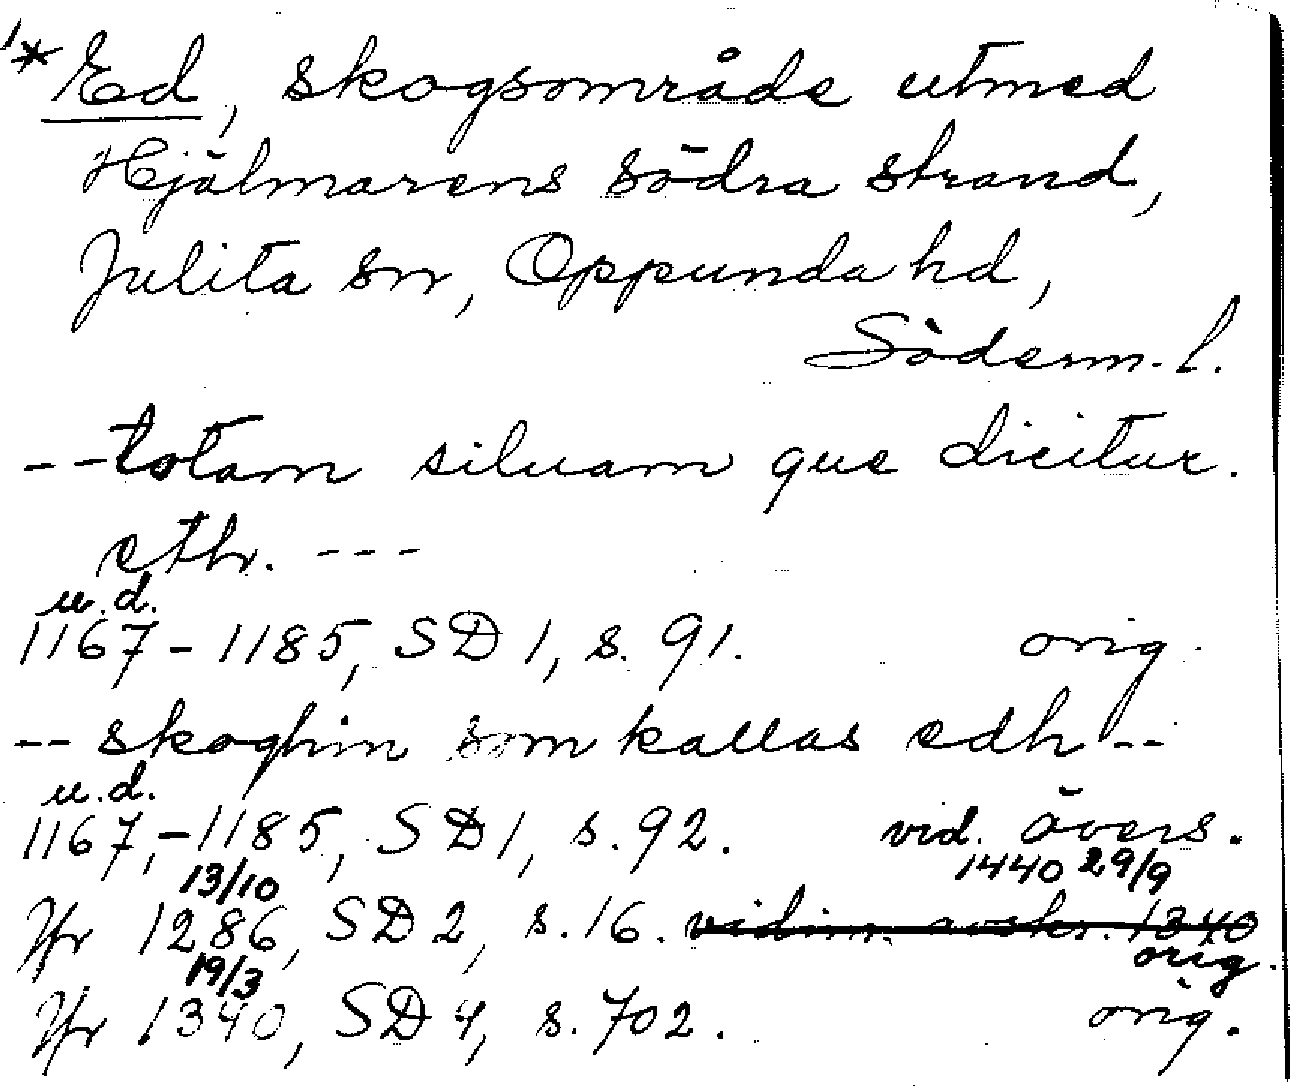 1* Ed, skogsområde utmed
Hjälmarens södra strand,
Julita sn, Oppunda hd,
Söderm. l.
-- totam siluam que dicitur.
eth. ---
u.d.
1167-1185, SD 1, s. 91. orig.
-- skoghin som kallas edh --
u.d.
1167,-1185, SD 1, s. 92. vid. övers.
1440 29/9
13/10
Jfr 1286, SD 2, s. 16. vidim. avskr. 1340
orig.
19/3
Jfr 1340, SD 4, s. 702. orig.